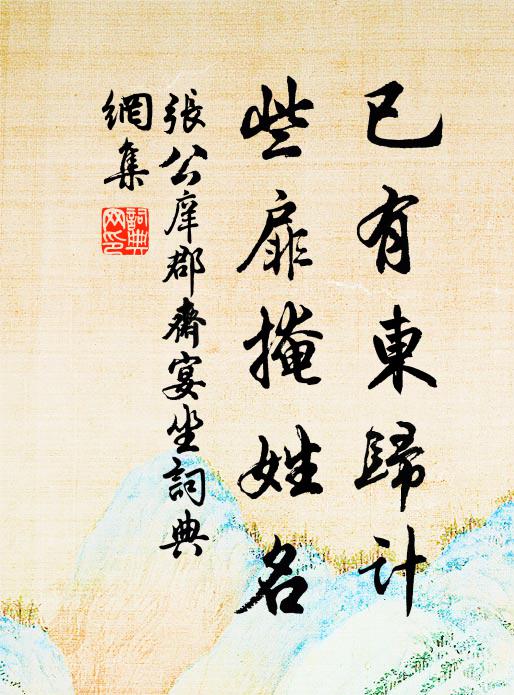 已有東歸計
些扉掩姓名
張公庠郡齋宴坐詞典
網集
詞典
网印